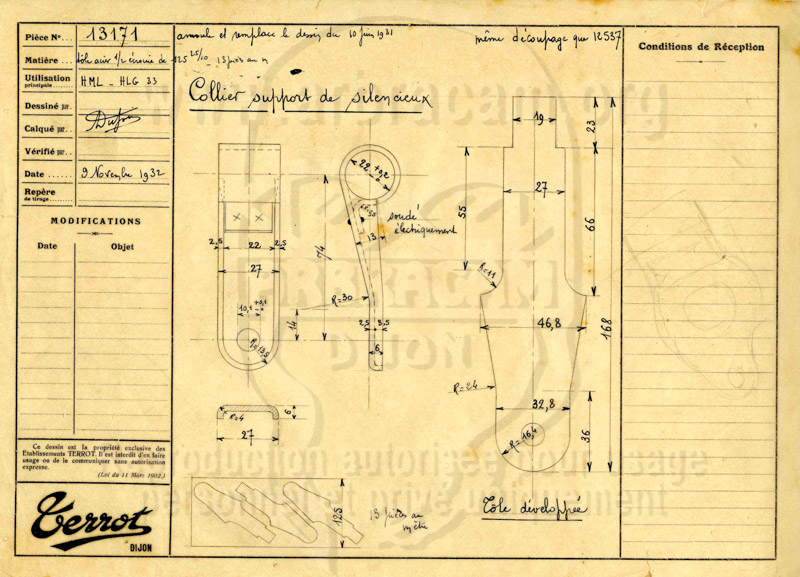 Pièce No... 13171
annule et remplace le dessin du 10 Juin 1931
même découpage que 12537
Conditions de Réception
Matière ...
de 125 25/10 - 13 pièces au m
Utilisation principale...... HML - HLG 33
Collier support de silencieux
Dessiné par.
Calqué par..
Vérifié par..
Date ...... 9 Novembre 1932
Repère de tirage......
MODIFICATIONS
Date Objet
19
23
22 +0,2 -0
27
55
66
soudé électriquement
13
74
2,5 22 2,5
27
R=11
R=30
10,1 +0,1 -0
14
2,5 3,5
46,8
168
R=13,5
6
R=24
32,8
R=4
6
27
R=16,4
36
Ce dessin est la propriété exclusive des
Etablissements TERROT. Il est interdit d'en faire
usage ou de le communiquer sans autorisation
expresse.
(Loi du 11 Mars 1902.)
Terrot
DIJON
125
13 pièces au mètre
Tôle développée
www.arbracam.org
ARBRACAM
DIJON
reproduction autorisée pour usage
personnel et privé uniquement